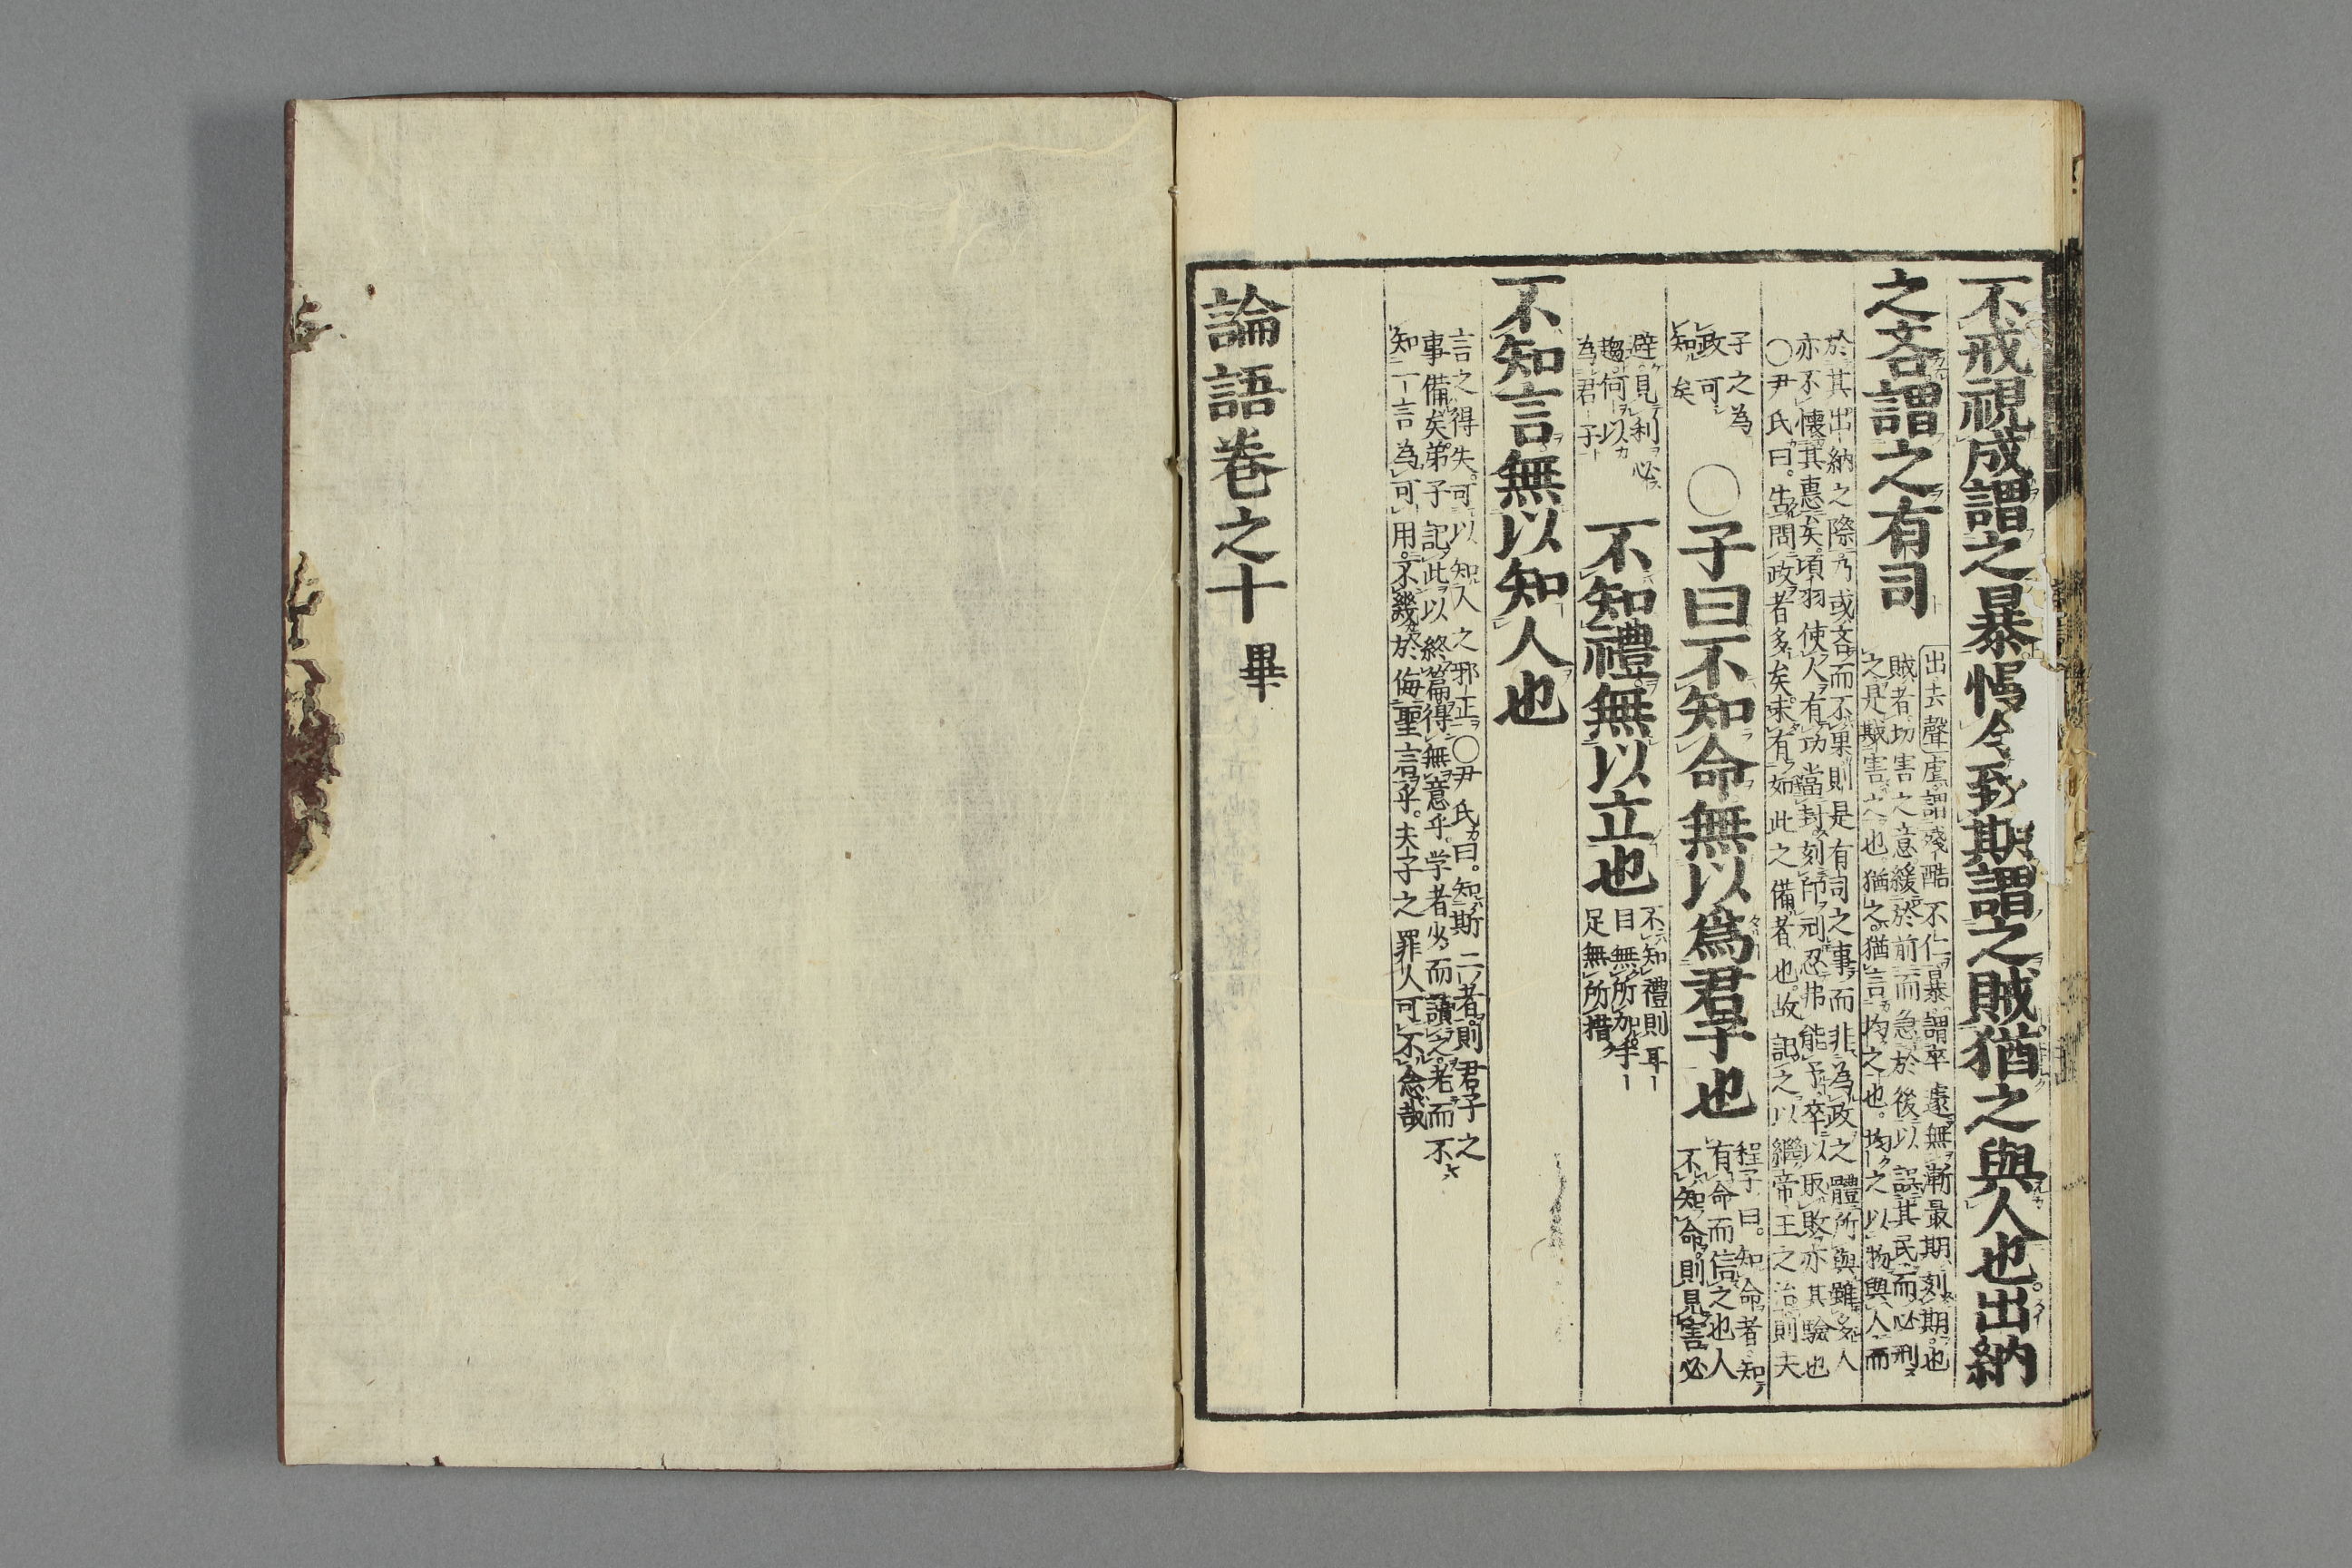 不戒視成謂之暴慢令致期謂之賊猶之與人也出納
之吝謂之有司
出去聲虐謂殘酷不仁暴謂卒遽無漸最期刻期也
賊者切害之意緩於前而急於後以誤其民而必刑
之是賊害之也猶之猶言均之也均之以物與人而
於其出納之際乃或吝而不果則是有司之事而非為政之體所與雖多人
亦不懷其惠矣項羽使人有功當封刻印刓忍弗能予卒以取敗亦其驗也
〇尹氏曰告問政者多矣未有如此之備者也故記之以繼帝王之治則夫
子之為
政可
知矣
〇子曰不知命無以為君子也
程子曰知命者知
有命而信之也人
不知命則見害必
避見利必
趨何以
為君子
不知禮無以立也
不知禮則耳
目無所加手
足無所措
不知言無以知人也
言之得失可以知人之邪正〇尹氏曰知斯二者則君子之
事備矣弟子記此以終篇得無意乎学者少而讀之老而不
知一言為可用不幾於侮聖言乎夫子之罪人可不念哉
論語卷之十 畢